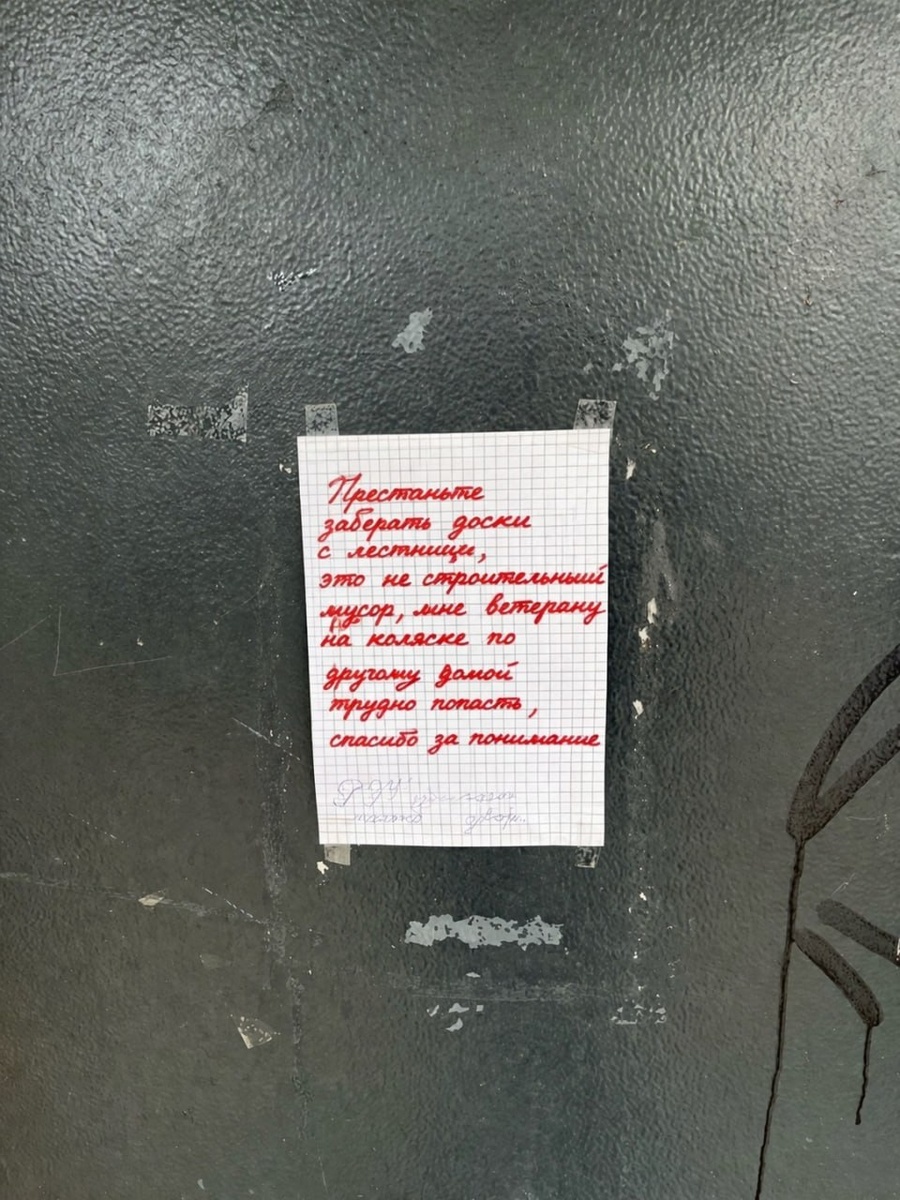 Престаньте
заберать доски
с лестници,
это не строительный
мусор, мне ветерану
на коляске по
другому домой
трудно попасть,
спасибо за понимание